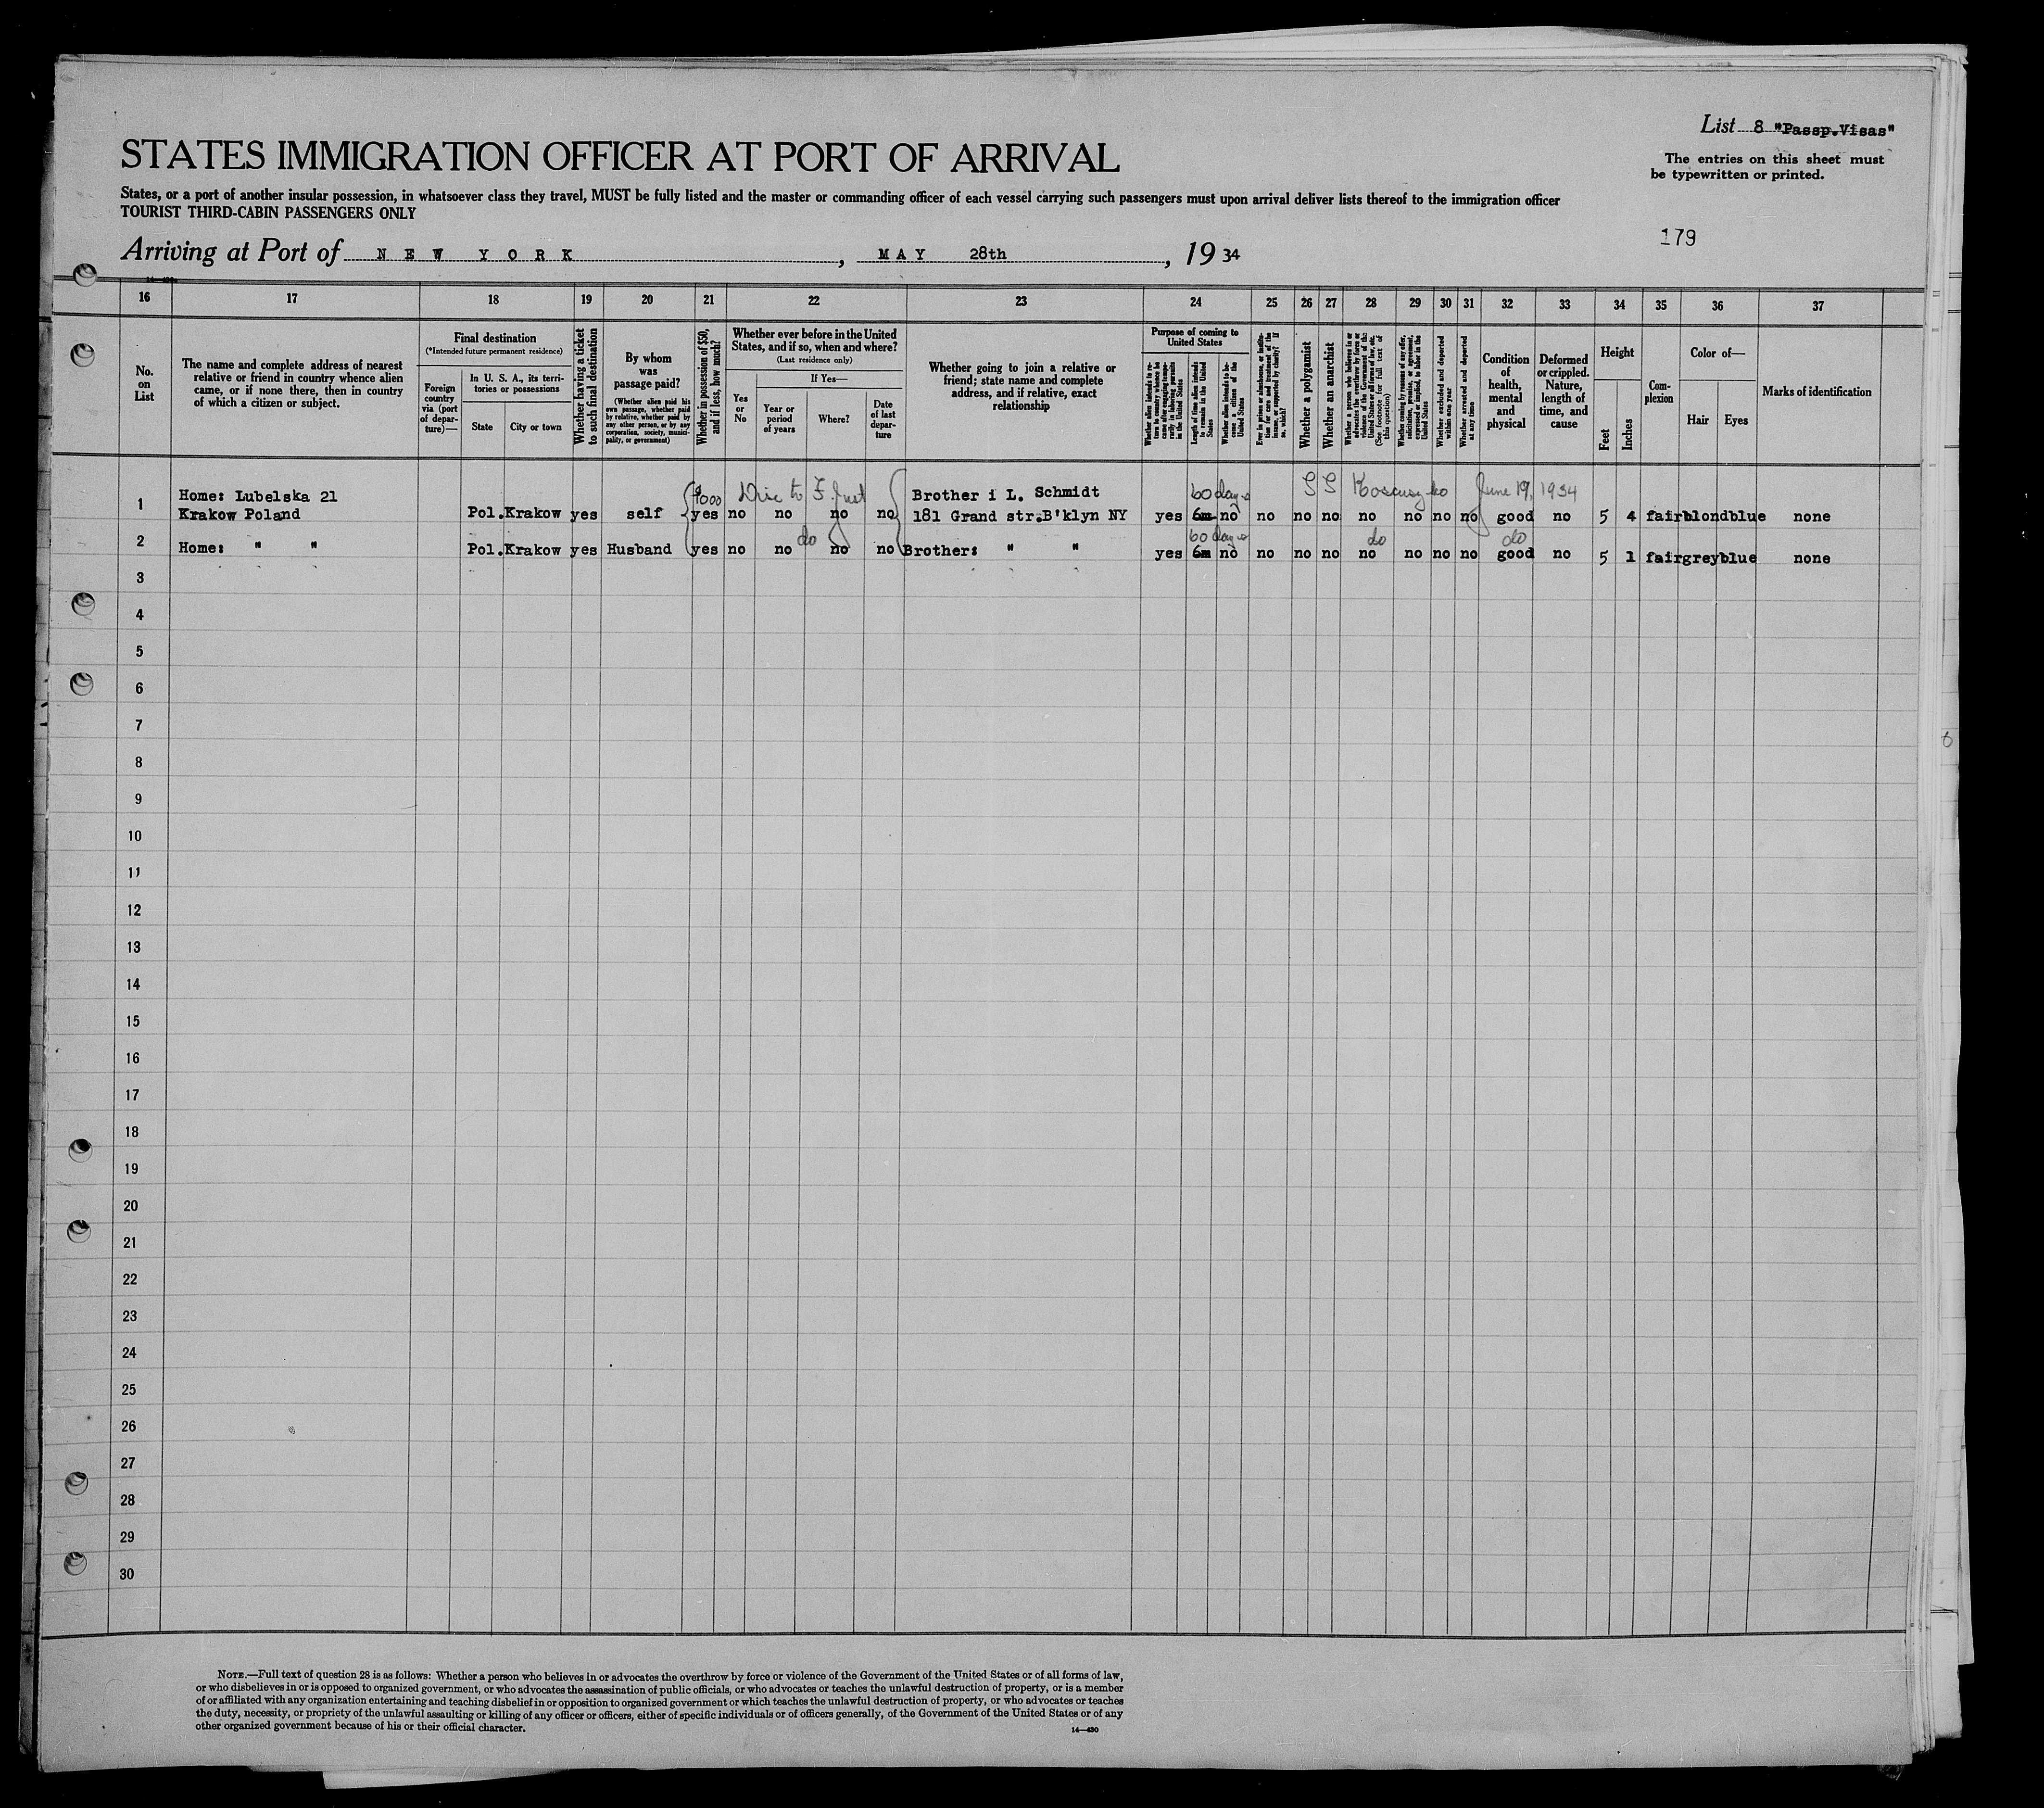 List 8 "Passp.Visas"
STATES IMMIGRATION OFFICER AT PORT OF ARRIVAL
The entries on this sheet must
be typewritten or printed.
States, or a port of another insular possession, in whatsoever class they travel, MUST be fully listed and the master or commanding officer of each vessel carrying such passengers must upon arrival deliver lists thereof to the immigration officer
TOURIST THIRD-CABIN PASSENGERS ONLY
179
Arriving at Port of NEW YORK, MAY 28th, 1934
16 17 18 19 20 21 22 23 24 25 26 27 28 29 30 31 32 33 34 35 36 37
No.
on
List
The name and complete address of nearest
relative or friend in country whence alien
came, or if none there, then in country
of which a citizen or subject.
Final destination
(*Intended future permanent residence)
Foreign
country
via (port
of depar-
ture)—
In U. S. A., its terri-
tories or possessions
State
City or town
Whether having a ticket
to such final destination
By whom
was
passage paid?
(Whether alien paid his
own passage, whether paid
by relative, whether paid by
any other person, or by any
corporation, society, munici-
pality, or government)
Whether in possession of $50,
and if less, how much?
Whether ever before in the United
States, and if so, when and where?
(Last residence only)
Yes
or
No
If Yes—
Year or
period
of years
Where?
Date
of last
depar-
ture
Whether going to join a relative or
friend; state name and complete
address, and if relative, exact
relationship
Purpose of coming to
United States
Whether alien intends to re-
turn to country whence he
came after engaging tempo-
rarily in laboring pursuits
in the United States
Length of time alien intends
to remain in the United
States
Whether alien intends to be-
come a citizen of the
United States
Ever in prison or almshouse, or institu-
tion for care and treatment of the
insane, or supported by charity? If
so, which?
Whether a polygamist
Whether an anarchist
Whether a person who believes in or
advocates the overthrow by force or
violence of the Government of the
United States or all forms of law, etc.
(See footnote for full text of
this question)
Whether coming by reason of any offer,
solicitation, promise, or agreement,
expressed or implied, to labor in the
United States
Whether excluded and deported
within one year
Whether arrested and deported
at any time
Condition
of
health,
mental
and
physical
Deformed
or crippled.
Nature,
length of
time, and
cause
Height
Feet
Inches
Com-
plexion
Color of—
Hair
Eyes
Marks of identification
1000 60 days SS Kosciuszko June 19, 1934
1 Home: Lubelska 21 Brother i L. Schmidt
Krakow Poland Pol. Krakow yes self yes no no no no 181 Grand str.B'klyn NY yes 6m no no no no no no no no good no 5 4 fair blond blue none
do 60 days do do
2 Home: " " Pol. Krakow yes Husband yes no no no no Brother: " " yes 6m no no no no no no no no good no 5 1 fair grey blue none
3
4
5
6
7
8
9
10
11
12
13
14
15
16
17
18
19
20
21
22
23
24
25
26
27
28
29
30
NOTE.—Full text of question 28 is as follows: Whether a person who believes in or advocates the overthrow by force or violence of the Government of the United States or of all forms of law,
or who disbelieves in or is opposed to organized government, or who advocates the assassination of public officials, or who advocates or teaches the unlawful destruction of property, or is a member
of or affiliated with any organization entertaining and teaching disbelief in or opposition to organized government or which teaches the unlawful destruction of property, or who advocates or teaches
the duty, necessity, or propriety of the unlawful assaulting or killing of any officer or officers, either of specific individuals or of officers generally, of the Government of the United States or of any
other organized government because of his or their official character.
14—430